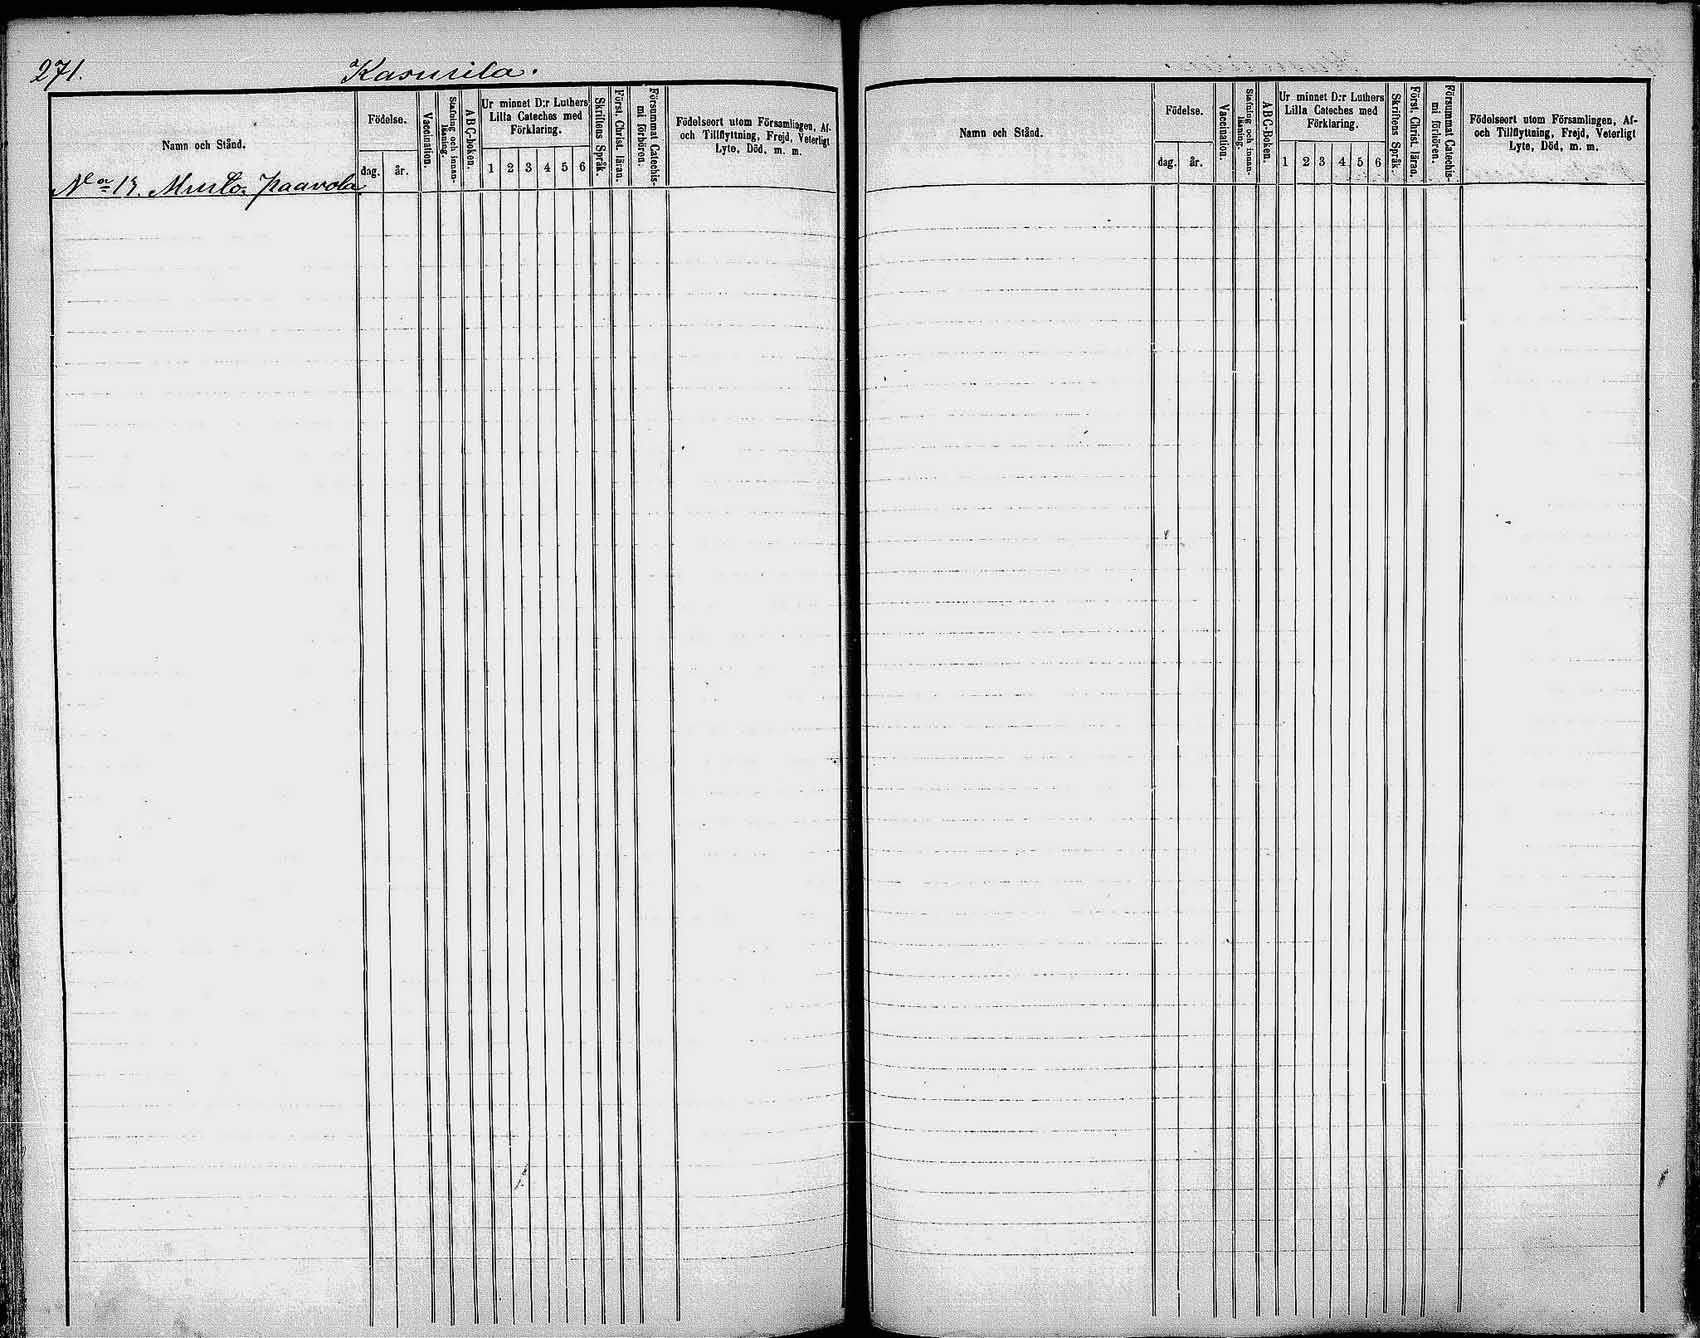 271. Kasurila.
Namn och Stånd.
Födelse.
dag.
år.
Vaccination.
Stafning och innan-
läsning.
ABC-boken.
Ur minnet D:r Luthers
Lilla Cateches med
Förklaring.
1 2 3 4 5 6
Skriftens Språk.
Först. Christ. läran.
Försummat Catechis-
mi förhören.
Födelseort utom Församlingen, Af-
och Tillflyttning, Frejd, Veterligt
Lyte, Död, m. m.
N:o 19. Musto, Paavola
Namn och Stånd.
Födelse.
dag.
år.
Vaccination.
Stafning och innan-
läsning.
ABC-Boken.
Ur minnet D:r Luthers
Lilla Cateches med
Förklaring.
1 2 3 4 5 6
Skriftens Språk.
Först. Christ. läran.
Försummat Catechis-
mi förhören.
Födelseort utom Församlingen, Af-
och Tillflyttning, Frejd, Veterligt
Lyte, Död, m. m.